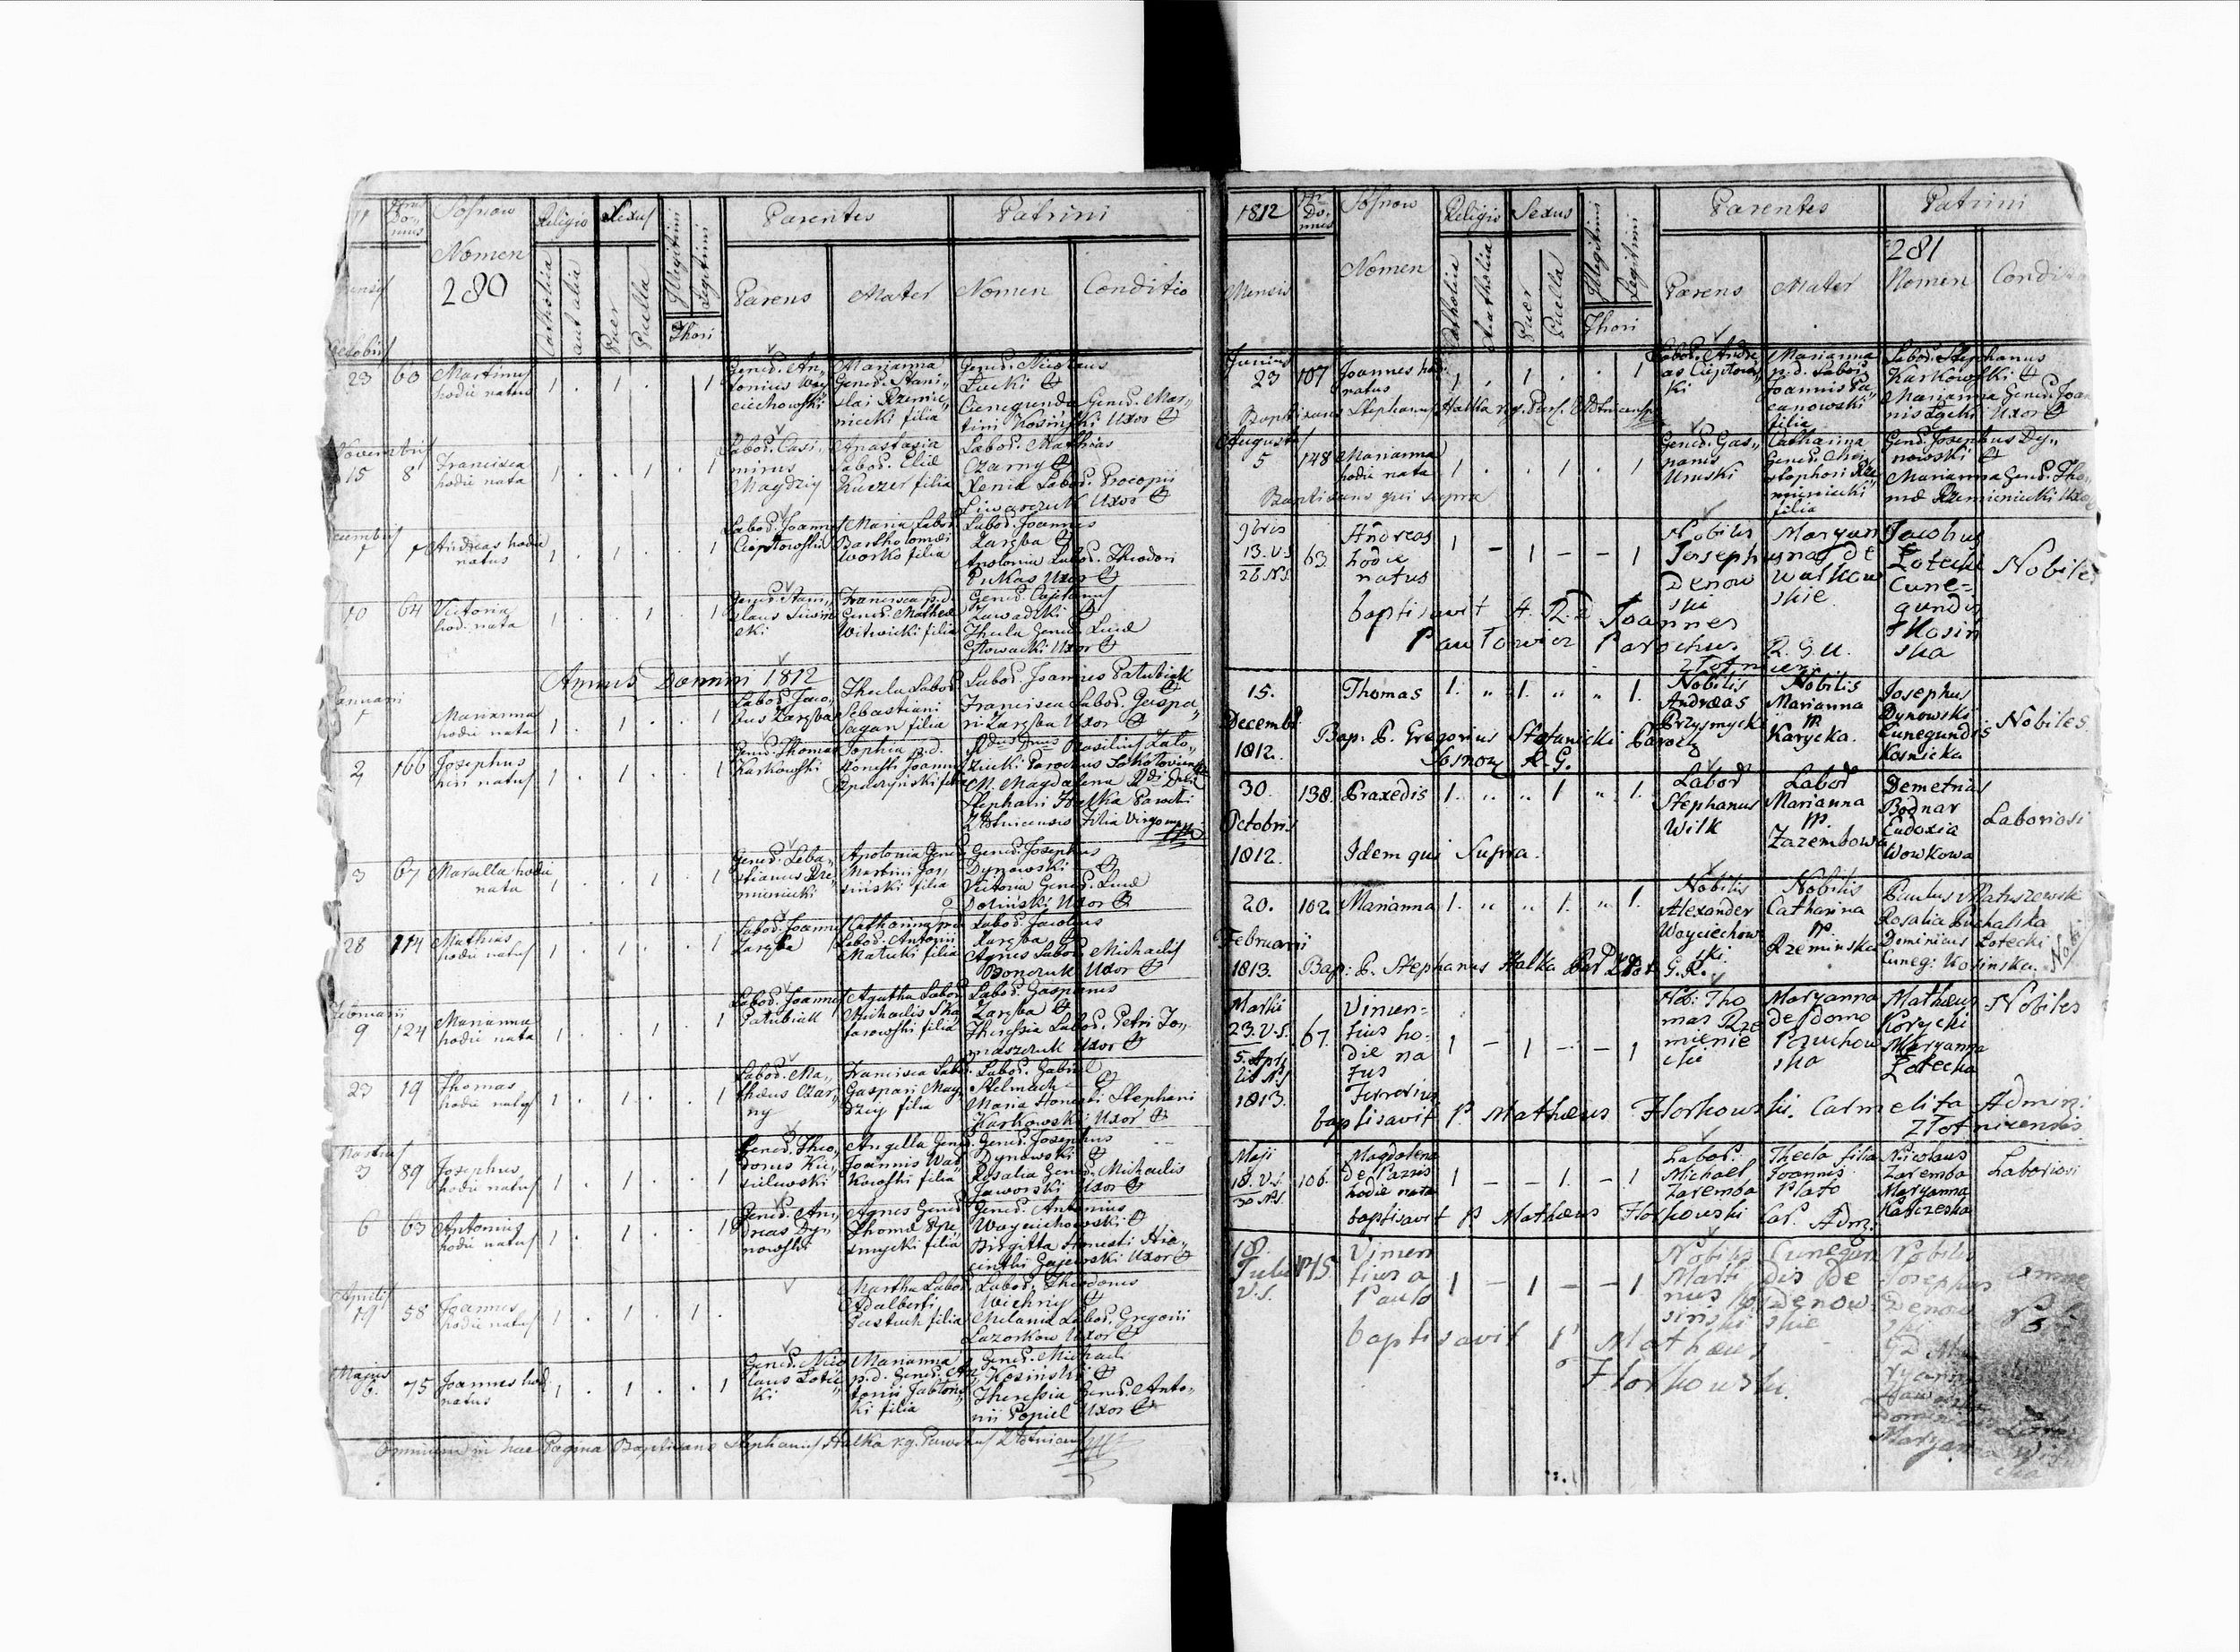 11 Numerus Domus Sosnow Religio Sexus Illegitimi Legitimi Parentes Patrini
Nomen
280
Mensis Catholica aut alia Puer Puella Thori Parens Mater Nomen Conditio
Octobris
23 60 Martinus hodie natus 1 . 1 . . 1
Gener. Antonius Woyciechowski
Marianna Gener. Stanislai Rzemieniecki filia
Gener. Nicolaus Łucki
Cunegunda Gener. Martini Kosinski Uxor
Novembris
15 8 Francisca hodie nata 1 . . 1 . 1
Labor. Casimirus Magdziy
Anastasia Labor. Eliæ Kuczer filia
Labor. Mathias Czarny
Xenia Labor. Procopii Liwarczuk Uxor
Andreas hodie natus 1 . 1 . . 1
Labor. Joannes
Maria Labor. Bartholomæi Worko filia
Labor. Joannes Zaręba
Antonina Labor. Theodori Pukas Uxor
10 64 Victoria hod. nata 1 . . 1 . 1
Francisca p.d. Gener. Mathæi Witwicki filia
Gener. Cajetanus Zawadzki
Thecla Gener. Lucæ Głowacki Uxor
Annus Domini 1812
Januarii
1 Marianna hodie nata
Labor. Jacobus Zaręba
Thecla Labor. Sebastiani Sagan filia
Labor. Joannes Patubiak
Francisca Labor. Gaspari Zaręba Uxor
2 166 Josephus heri natus 1 . 1 . . 1
Gener. Thomas Karkowski
Sophia p.d. Honesti Joannis
Basilius
M. Magdalena
Stephani Halka Parochi Zlotnicensis filia Virgo
3 67 Marcella hodie nata 1 . . 1 . 1
Gener. Sebastianus Rzemieniecki
Apolonia Gener. Martini
Gener. Josephus Dynowski
Victoria Gener. Lucæ Doliński Uxor
28 114 Mathias hodie natus 1 . 1 . . 1
Labor. Joannes Zaręba
Catharina p.d. Labor. Antonii Matuki filia
Labor. Jacobus Zaręba
Agnes Labor. Michaelis Bonczuk Uxor
Februarii
9 124 Marianna hodie nata 1 . . 1 . 1
Labor. Joannes Patubiak
Agatha Labor. Michaelis filia
Labor. Gasparus Zaręba
Theressia Labor. Petri Tomaszczuk Uxor
23 19 Thomas hodie natus 1 . 1 . . 1
Labor. Mathæus Czarny
Francisca Labor. Gaspari Magdziy filia
Labor. Gabriel Stelmach
Maria Honesti Stephani Karkowski Uxor
Martius
3 89 Josephus hodie natus 1 . 1 . . 1
Angella Gener. Joannis filia
Gener. Josephus Dynowski
Rosalia Gener. Michaelis Jaworski Uxor
6 63 Antonius hodie natus 1 . 1 . . 1
Gener. Andreas Dynowski
Agnes Gener. Thomæ Przesmycki filia
Gener. Antonius Woyciechowski
Birgitta Honesti Hiacinthi Gajewski Uxor
Aprilis
19 58 Joannes hodie natus 1 . 1 . 1 .
Martha Labor. Adalberti Pastuch filia
Labor. Theodorus Wichniy
Melania Labor. Gregorii Lazorkow Uxor
Majus
6. 75 Joannes hodie natus 1 . 1 . . 1
Gener. Nicolaus Łotecki
Marianna p.d. Gener. Antonii Jabłonski filia
Gener. Michael Kosinski
Theressia Gener. Antonii Popiel Uxor
Omnium in hac Pagina Baptisans Stephanus Halka r.g. Parochus Zlotnicensis
1812 Nr Domus Sosnow Religio Sexus Illegitimi Legitimi Parentes Patrini
281
Mensis Nomen Catholica Acatholica Puer Puella Thori Parens Mater Nomen Conditio
Junius
23 107 Joannes hod. natus 1 . 1 . . 1
Labor. Andreas
Marianna p.d. Laboris Joannis filia
Labor. Stephanus Karkowski
Marianna Gener. Joannis Łycki Uxor
Baptisans Stephanus Halka r.g. Par. Zlotnicensis
Augusti
5 148 Marianna hodie nata 1 . . 1 . 1
Gener. Gasparus Uruski
Catharina Gener. Christophori Rzemieniecki filia
Gener. Josephus Dynowski
Marianna Gener. Thomæ Rzemieniecki Uxor
Baptisans qui supra
9bris
13. V.S.
26 N.S. 63. Andreas hodie natus 1 – 1 – – 1
Nobilis Josephus Denowski
Maryanna de Walkowskie
Jacobus Łotecki Cunegundis Kosinska
Nobiles
baptisavit A. R. D Joannes
Pawłowicz Parochus R. G. U.
Zlotnicen.
15. Decembr. 1812. Thomas 1. „ 1. „ „ 1.
Nobilis Andræas Przysmycki
Nobilis Marianna Karycka.
Josephus Dynowski Cunegundis Kosnicka
Nobiles
Bap: P. Gregorius Stefanicki Paroch
Sosnow R. G.
30. Octobris 1812. 138. Praxedis 1. „ „ 1 „ 1.
Labor Stephanus Wilk
Labor Marianna Zazembowa
Demetrius Bodnar Eudoxia Wowkowa
Laboriosi
Idem qui Supra.
20. Februarii 1813. 102. Marianna 1. „ „ 1. „ 1.
Nobilis Alexander Woyciechowski.
Nobilis Catharina Rzeminska
Paulus Matuszewski Rosalia Puchalska Dominicus Łotecki Cuneg: Kosinska.
Nobi
Bap: P. Stephanus Halka Par Zlot. G. R.
Martii
23. V.S.
5. Aprilis N.S.
1813. 67. Vincentius hodie natus Ferrerius 1 – 1 – – 1
Nob: Thomas Rzemieniecki
Maryanna de domo Pazuchowska
Mathæus Korycki Maryanna Łotecka
Nobiles
baptisavit P. Mathæus Florkowski. Carmelita Admz:
Zlotnicensis
Maji
18. V.S.
30 N.S. 106. Magdalena De Pazzis hodie nata 1 – – 1. – 1
Labor. Michael Zaremba
Thecla filia Joannis Plato
Nicolaus Zaremba Maryanna
Laboriosi
baptisavit P Mathæus Florkowski Car. Admz:
18. Julii V.S. 145. Vincentius a Paulo 1 – 1 – – 1.
Nobilis Martinus Kosinski
Cunegundis De Denowskie
Nobilis Josephus Denowski
omnes
baptisavit P Mathæus
Florkowski.
Maryanna